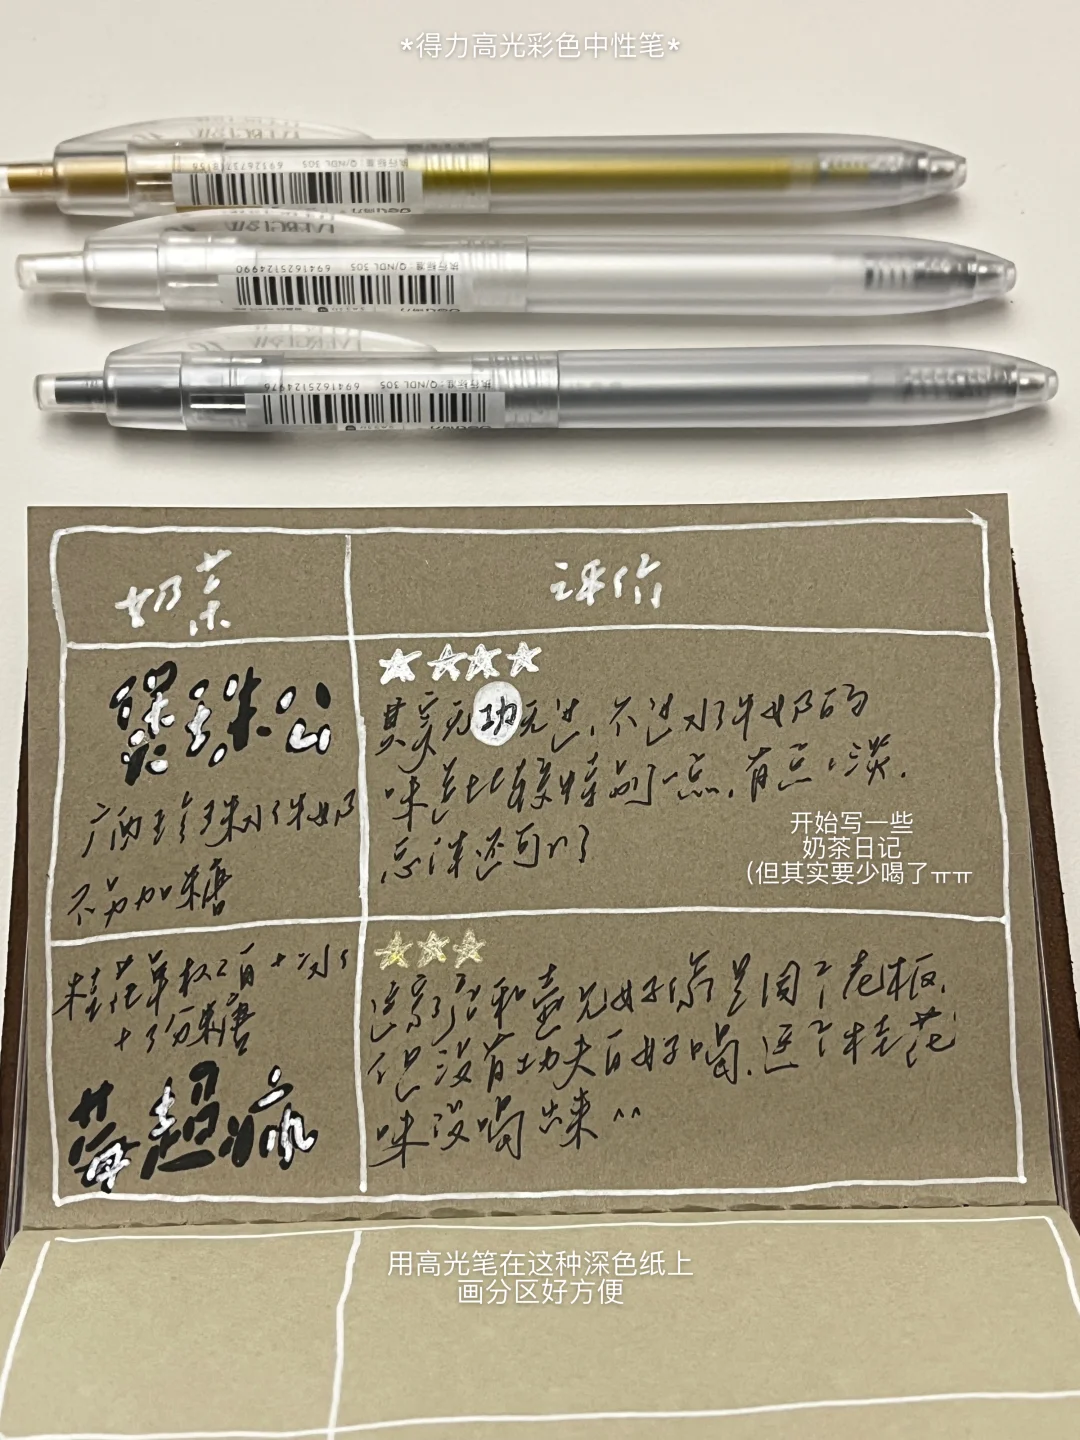 *得力高光彩色中性笔*
6912673
执行标准:Q/NDL 305
6941625124990
执行标准:Q/NDL 305
6941625124976
执行标准:Q/NDL 305
奶茶
评价
煲珠公
广西珍珠水牛奶
不另加糖
其实无功无过,不过水牛奶的
味道比较特别一点,有点点淡.
总体还可以了
开始写一些
奶茶日记
(但其实要少喝了ㅠㅠ
桂花单枞2百+冰
+3分糖
莓超疯
这家店和壶允好像是同个老板,
但没有功夫百好喝.这个桂花
味没喝出来^^
用高光笔在这种深色纸上
画分区好方便